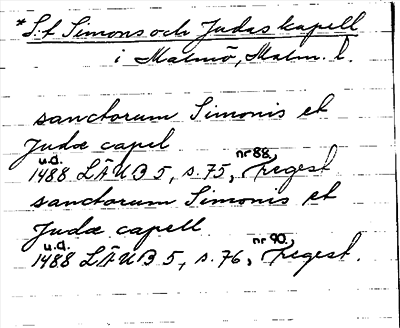 *S:t Simons och Judas kapell
i Malmö, Malm. l.
sanctorum Simonis et
Jude capel
u.d. nr 88,
1488 LÄUB 5, s. 75, regest
sanctorum Simonis et
Jude capell
u.d. nr 90,
1488 LÄUB 5, s. 76, regest.